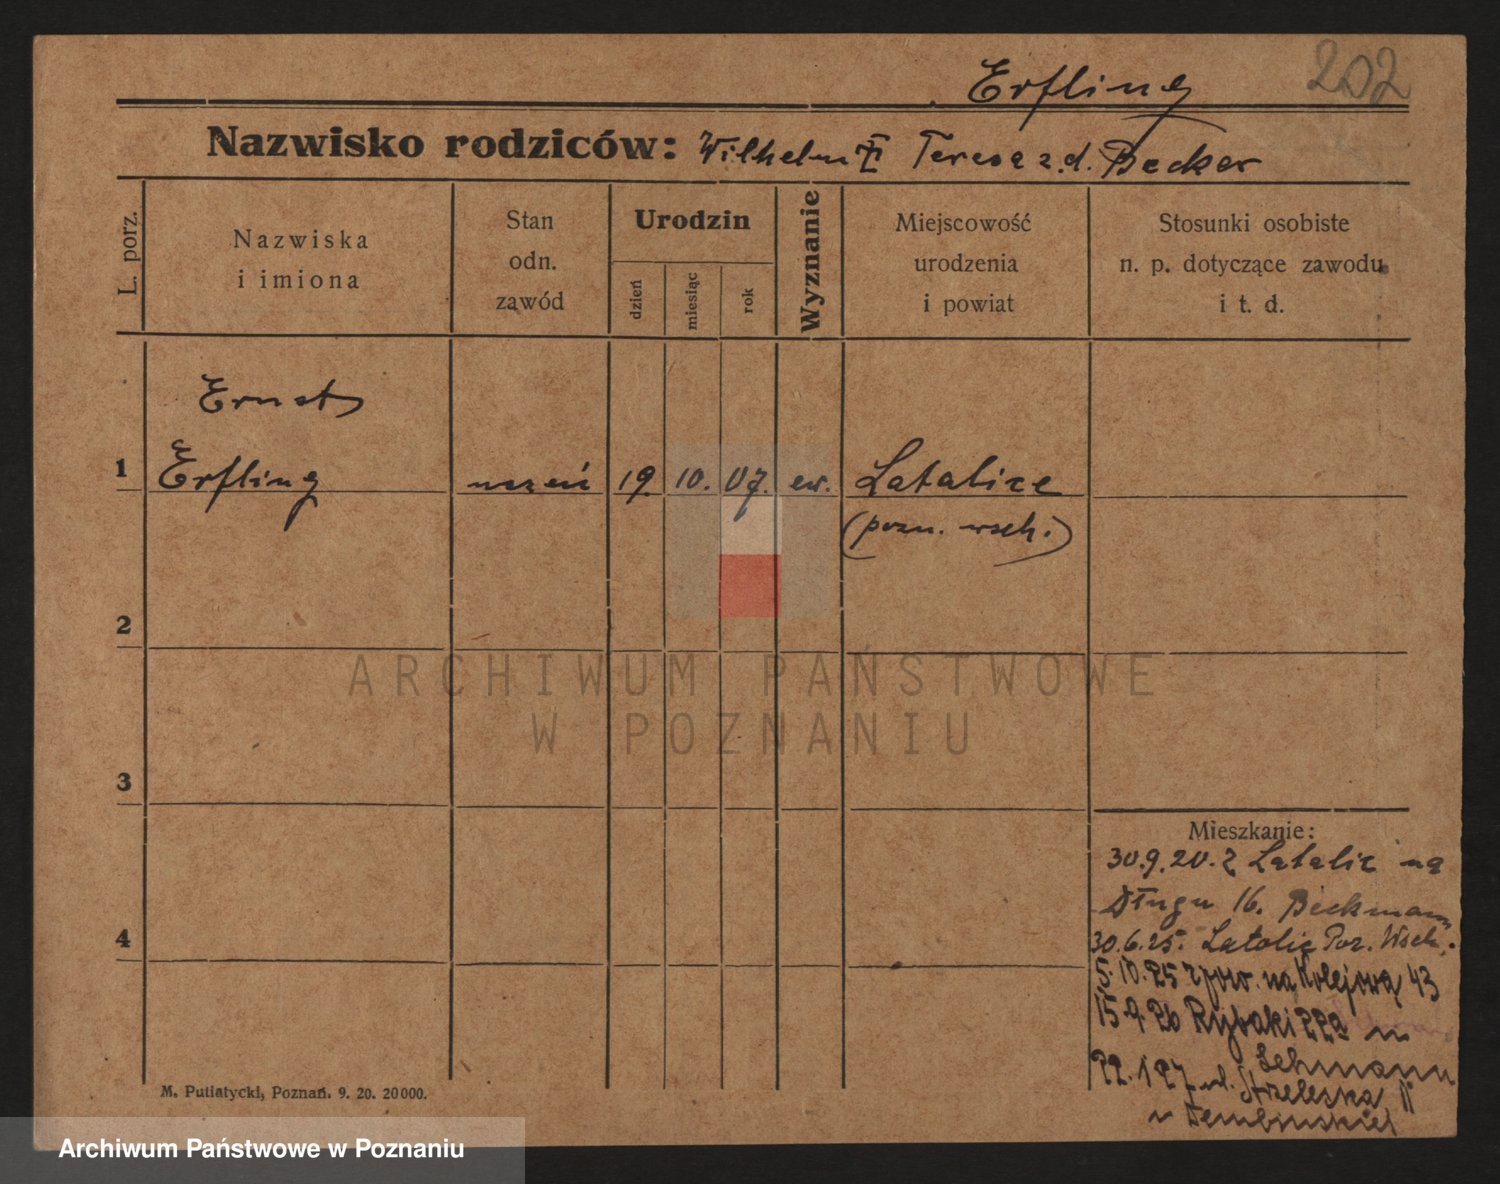 202
Erfling
Nazwisko rodziców: Wilhelm Teresa z.d. Becker
L. porz.
Nazwiska
i imiona
Stan
odn.
zawód
Urodzin
dzień
miesiąc
rok
Wyznanie
Miejscowość
urodzenia
i powiat
Stosunki osobiste
n. p. dotyczące zawodu
i t. d.
Ernst
1 Erfling uczeń 19. 10. 07. ew. Latalice
(pozn. wsch.)
2
ARCHIWUM PAŃSTWOWE
W POZNANIU
3
Mieszkanie:
30.9.20. z Latalic na
Długu 16. Beckmann
4
30.6.25. Latalic Poz. Wsch.
5.10.25 z pow. na Kolejową 43
15.9.26 Rybaki 22a m
Lehmann
22.1 27 ul. Strzelecka 11
u Dembinskiej
M. Putiatycki, Poznań. 9. 20. 20000.
Archiwum Państwowe w Poznaniu